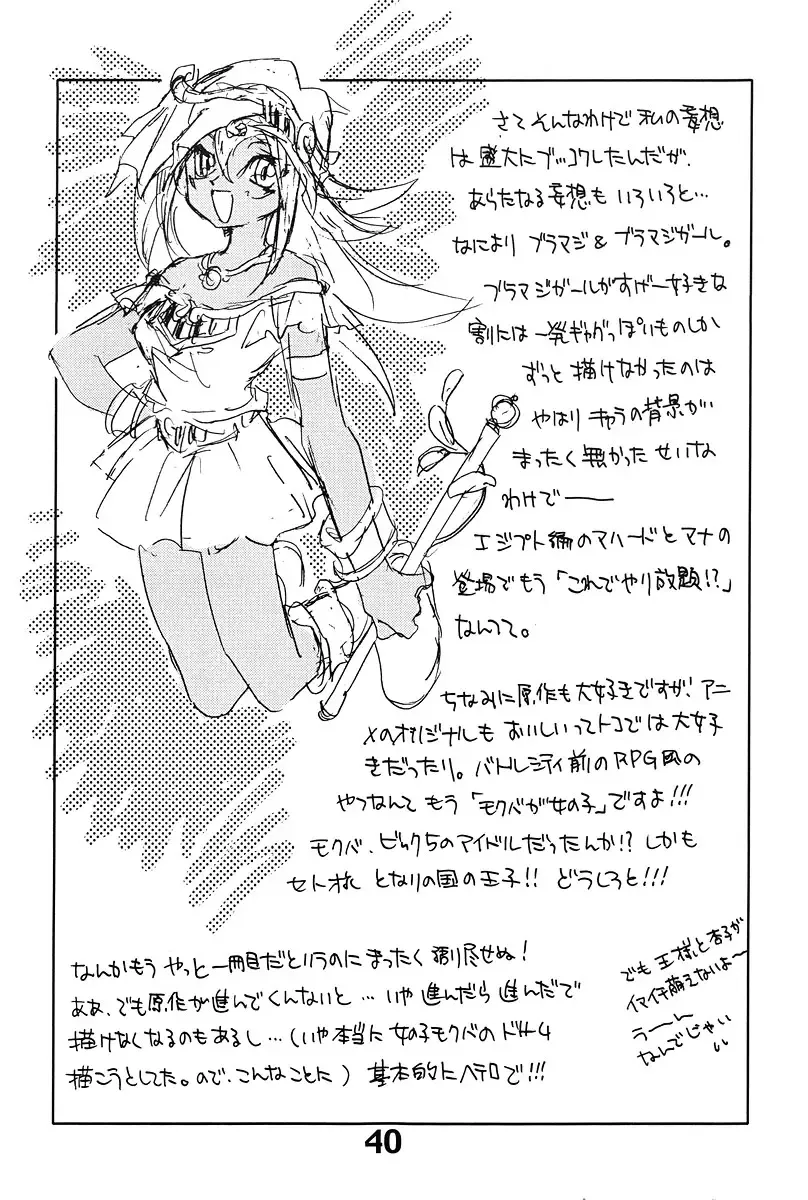 さてそんなわけで私の妄想
は盛大にブッコワしたんだが、
あらたなる妄想もいろいろと…
なにより ブラマジ & ブラマジガール。
ブラマジガールがすげー好きな
割には一発ギャグっぽいものしか
ずっと描けなかったのは
やはりキャラの背景が
まったく無かったせいな
わけで――
エジプト編のマハードとマナの
登場でもう「これでやり放題!?」
なんてて。
ちなみに原作も大好きですが、アニ
メのオリジナルもおいしいってトコでは大好
きだったり。バトルシティ前のRPG風の
やつなんてもう「モクバが女の子」ですよ!!!
モクバ、ビック5のアイドルだったんか!? しかも
セトオれ となりの国の王子!! どうしろと!!!
なんかもう やっと一冊目だというのにまったく 語り尽せぬ!
ああ、でも原作が進んでくんないと…いや進んだら進んだで
描けなくなるのもあるし…(いや本当に女の子モクバの
描こうとしてた。ので、こんなことに) 基本的にヘテロで!!!
でも王様と杏子が
イマイチ萌えないよ〜
うーーん
なんでじゃい
40